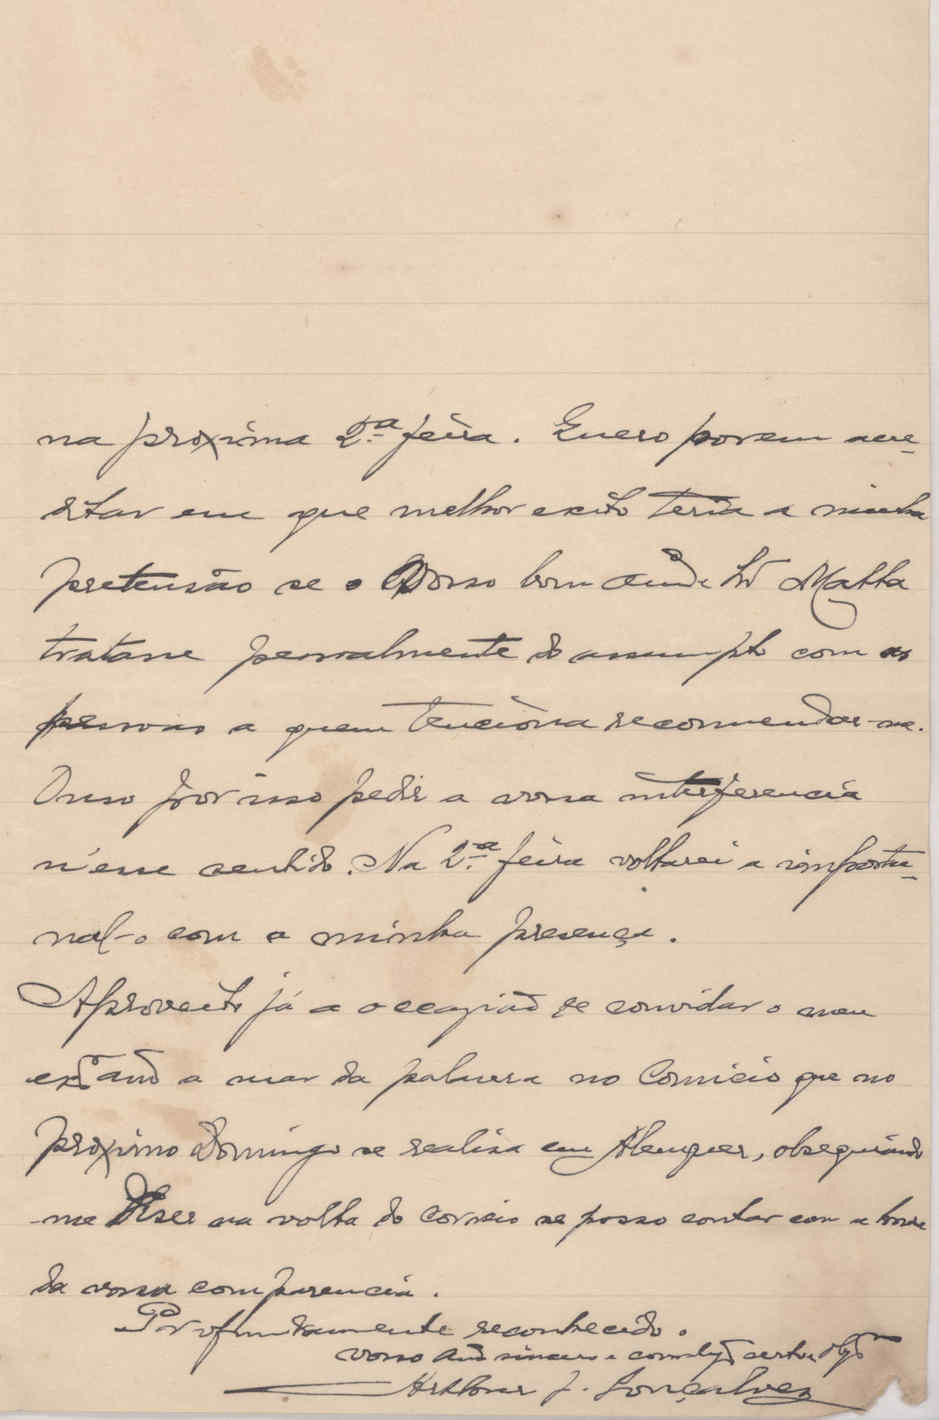 na proxima 2.ª feira. Quero porem acre-
ditar em que melhor exito teria a minha
pretensão se o Vosso bom amº e Sr Matta
tratasse pessoalmente do assumpto com as
pessoas a quem tenciona recommendar-me.
Ouso por isso pedir a vossa interferencia
n'esse sentido. Na 2.ª feira voltarei a importu-
nal-o com a minha presença.
Aproveito já a occazião de convidar o meu
exmº amº a usar da palavra no Comicio que no
proximo Domingo se realisa em Alemquer, obsequiando
me dizer na volta do correio se posso contar com a honra
da vossa comparencia.
Profundamente reconhecido.
Vosso amº sincero e correlgº certo obgº
J. Gonçalves